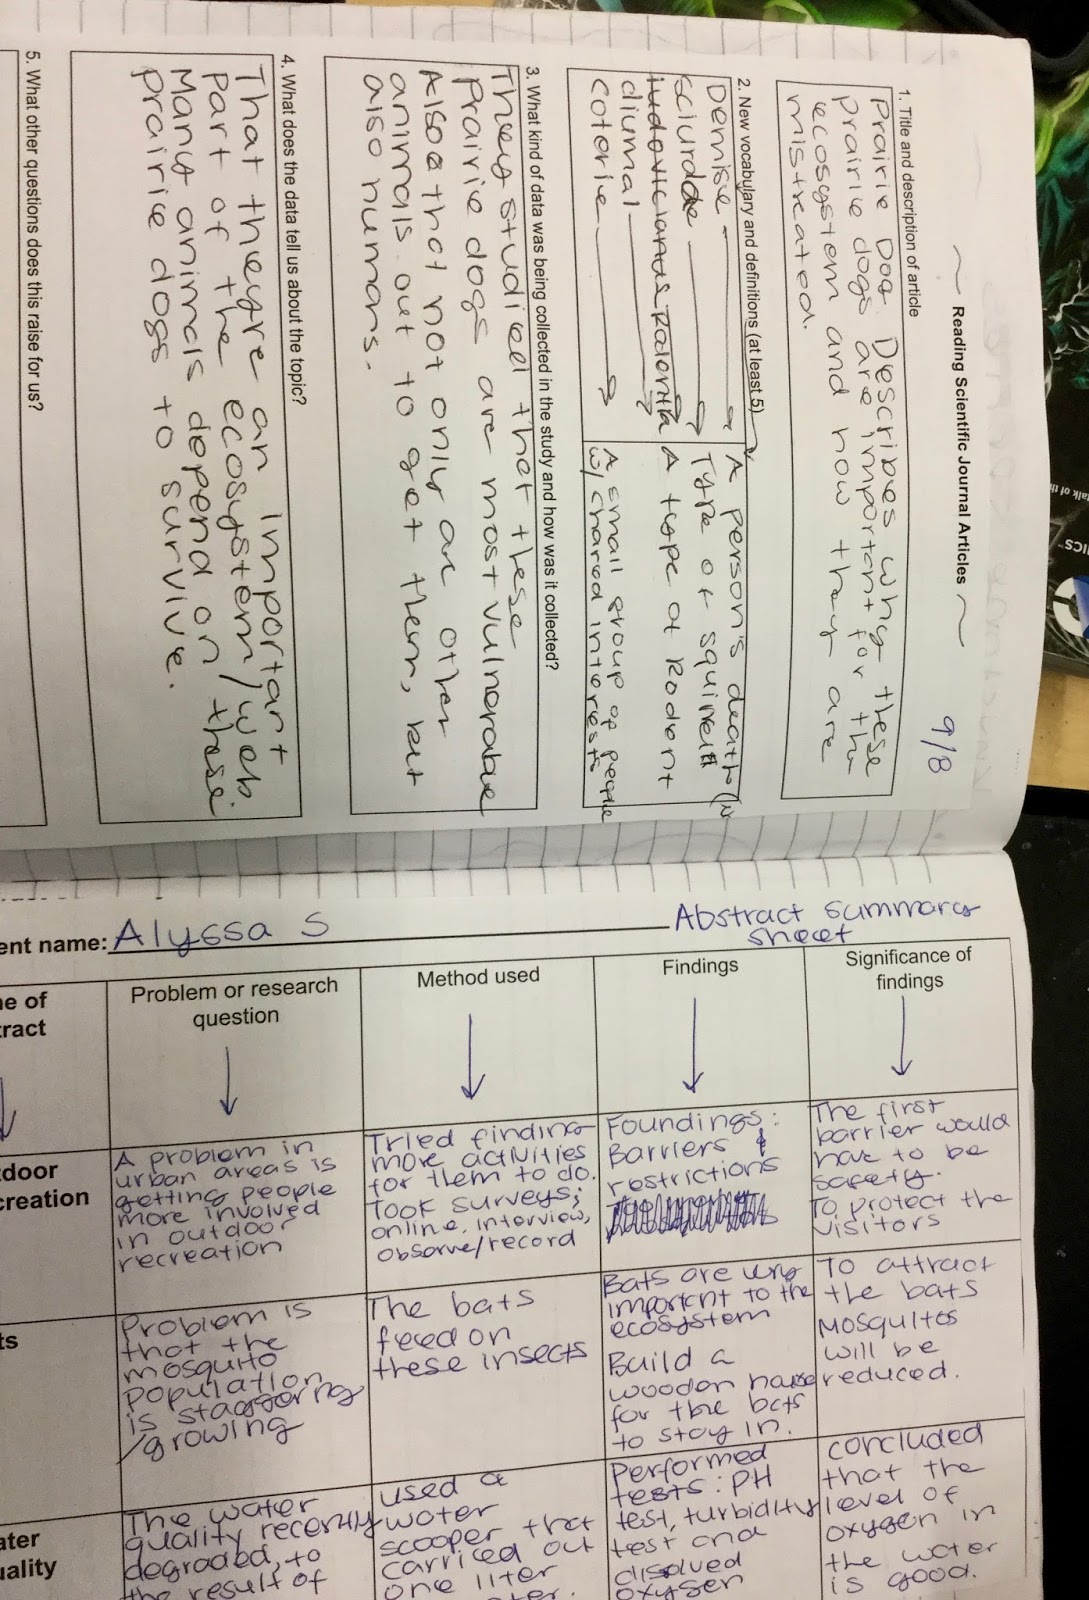 9/8
~ Reading Scientific Journal Articles ~
1. Title and description of article
Prairie Dog. Describes why these
prairie dogs are important for the
ecosystem and how they are
mistreated.
2. New vocabulary and definitions (at least 5)
Demise → A person's death
Sciurdae → Type of squirrel
diurnal → A type of Rodent
Coterie → A small group of people
w/ chared interests
3. What kind of data was being collected in the study and how was it collected?
They studied that these
prairie dogs are most vulnerable
Also that not only are other
animals out to get them, but
also humans.
4. What does the data tell us about the topic?
That theyre an important
part of the ecosystem/web.
Many animals depend on these
prairie dogs to survive.
5. What other questions does this raise for us?
Abstract summary
sheet
ent name: Alyssa S
Problem or research
question
Method used
Findings
Significance of
findings
A problem in
urban areas is
getting people
more involved
in outdoor
recreation
Tried finding
more activities
for them to do.
Took surveys;
online, interview,
observe/record
Foundings:
Barriers &
restrictions
The first
barrier would
have to be
safety.
To protect the
visitors
Problem is
that the
mosquito
population
is staggering
/growing
The bats
feed on
these insects
Bats are very
important to the
ecosystem
Build a
wooden house
for the bats
to stay in.
To attract
the bats
Mosquites
will be
reduced.
The water
quality recently
degraded, to
the result of
used a
water
scooper that
carried out
one liter
Performed
tests: PH
test, turbidity
test and
dissolved
oxygen
concluded
that the
level of
oxygen in
the water
is good.